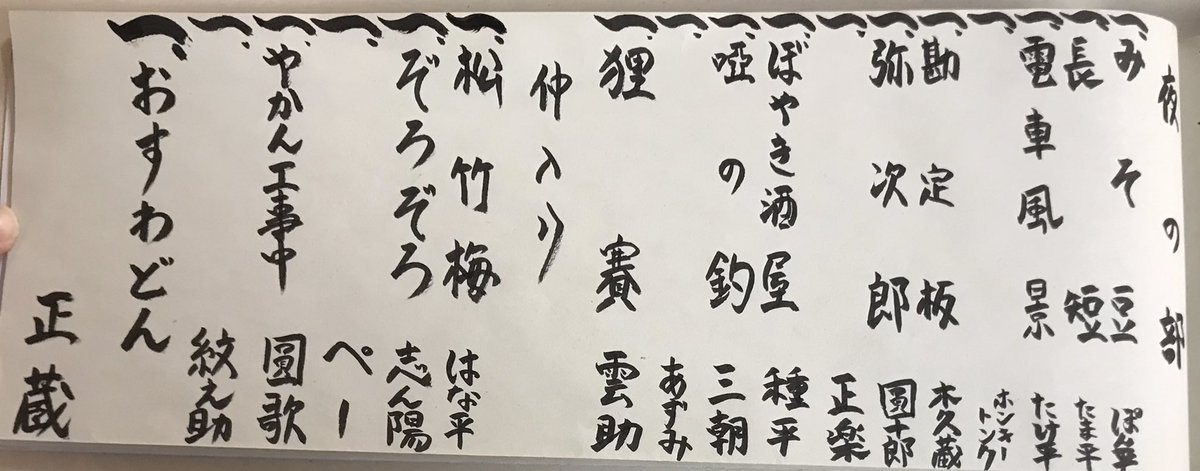 夜の部
一、みそ豆 ぽん平
一、長短 たま平
一、電車風景 たけ平
一、ホンキートンク
一、勘定板 木久蔵
一、弥次郎 圓十郎
一、正楽
一、ぼやき酒屋 種平
一、唖の釣 三朝
一、あずみ
一、狸賽 雲助
仲入り
一、松竹梅 はな平
一、ぞろぞろ 志ん陽
一、ぺー
一、やかん工事中 圓歌
一、紋之助
一、おすわどん
正蔵